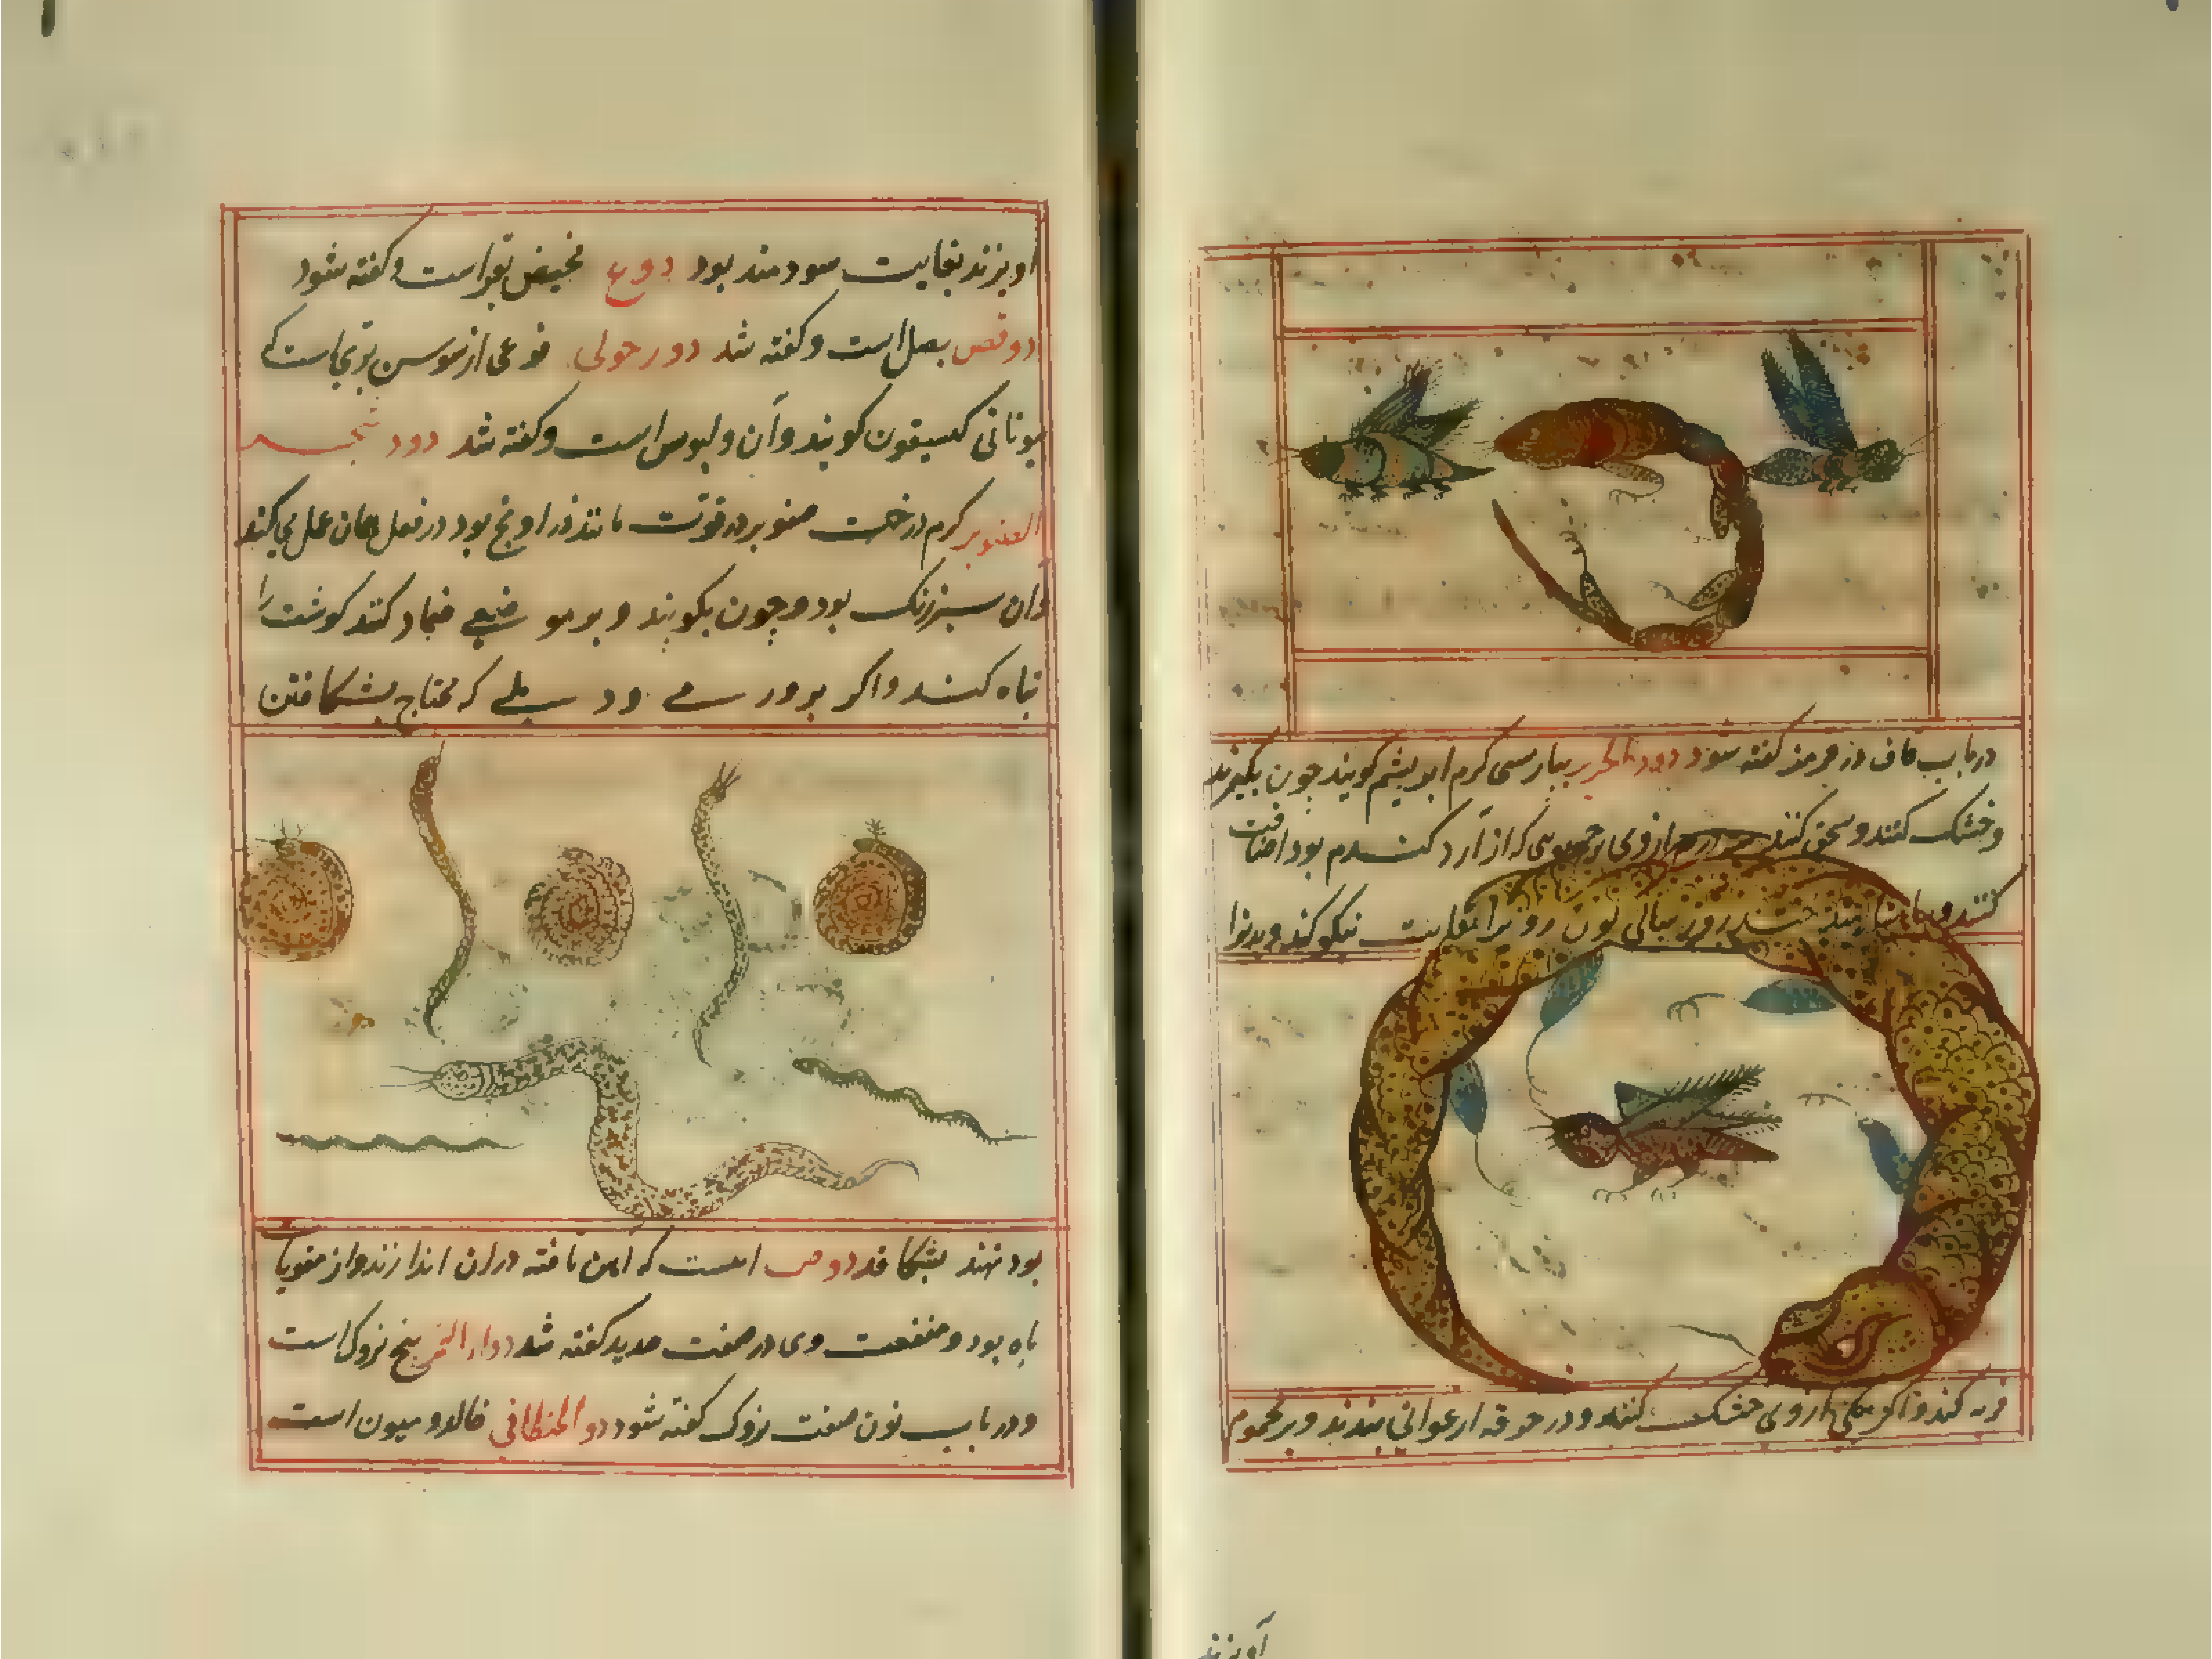 در باب قاف در قرمز گفته شود دود الحریر بپارسی کرم ابریشم گویند چون بگیرند
و خشک کنند و سحق کنند ازوی که از آرد کندم بود اضافت
کنند و روز نیکو کند و بدنرا
فربه کند و اگر ازوی خشک کنند و در خرقه ارغوانی بندند و بر محموم
آویزند
اویزند بغایت سودمند بود دوغ مخیض بقراست و گفته شود
دوقص بصل است و گفته شد دورحولی نوعی از سوسن بری است که
یونانی کسیفون کویند و آن ولبوس است و گفته شد دود شجر
الصنوبر کرم درخت صنوبر در قوت مانند ذراویح بود در فعل همان عمل می کند
وان سبز رنک بود و چون بکویند و بر موضعی ضماد کنند کوشت را
تباه کند و اکر بر ورمی و دبیلی که محتاج بشکافتن
بود نهند بشکافد دوص است که آهن تافته دران اندازند و از مقویات
باه بود و منفعت وی در صفت حدید کفته شد دوار بیخ نزوک است
و در باب نون صفت نزوک کفته شود دو فالدومیون است